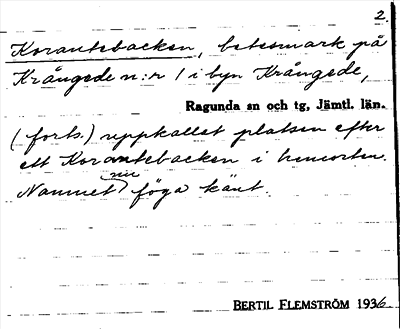 2.
Korantebacken, betesmark på
Krångede n:r 1 i byn Krångede,
Ragunda sn och tg, Jämtl. län.
(forts.) uppkallat platsen efter
ett Korantebacken i hemorten.
Namnet nu föga känt.
BERTIL FLEMSTRÖM 1936.